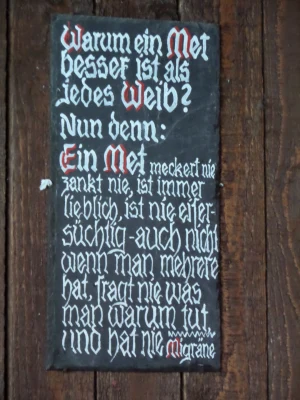 Warum ein Met
besser ist als
jedes Weib?
Nun denn:
Ein Met meckert nie
zankt nie, ist immer
lieblich, ist nie eifer-
süchtig - auch nicht
wenn man mehrere
hat, fragt nie was
man warum tut,
und hat nie Migräne